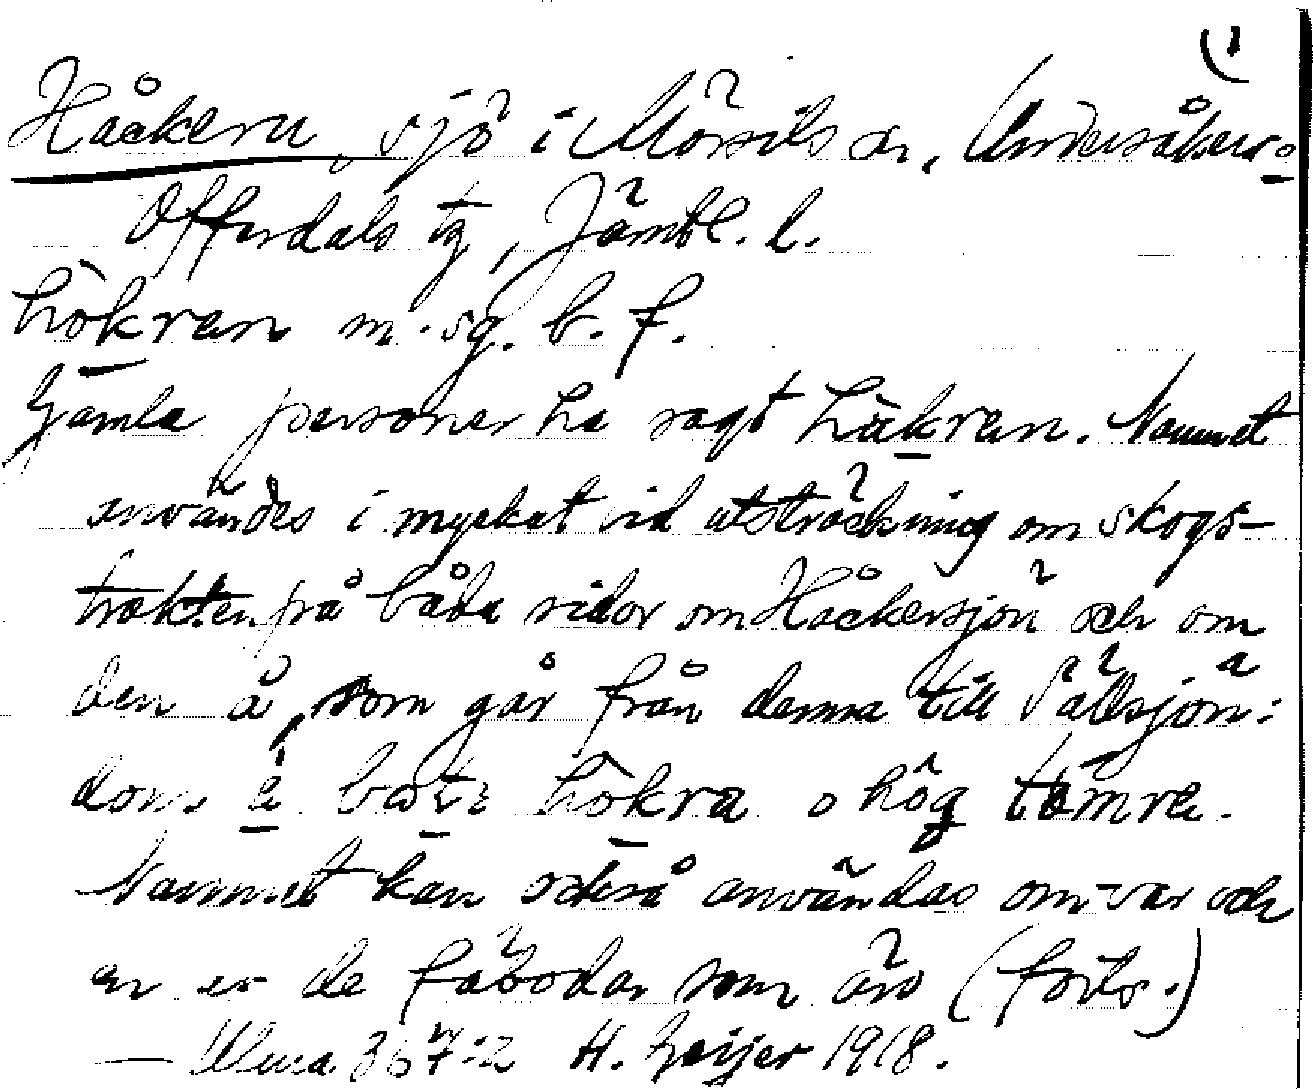 1)
Håckern, sjö i Mörsils sn, Undersåkers-
Offerdals tg, Jämtl. l.
hòkran m. sg. b. f.
Gamla personer ha sagt hàkran. Namnet
användes i mycket vid utsträckning om skogs-
trakten på båda sidor om Håckersjön och om
den å, som går från denna till Sällsjön:
dom e bo̵t i hòkra o hög tömre.
Namnet kan också användas om var och
en av de fäbodar som äro (forts.)
— Ulma 367:2 H. Geijer 1918.